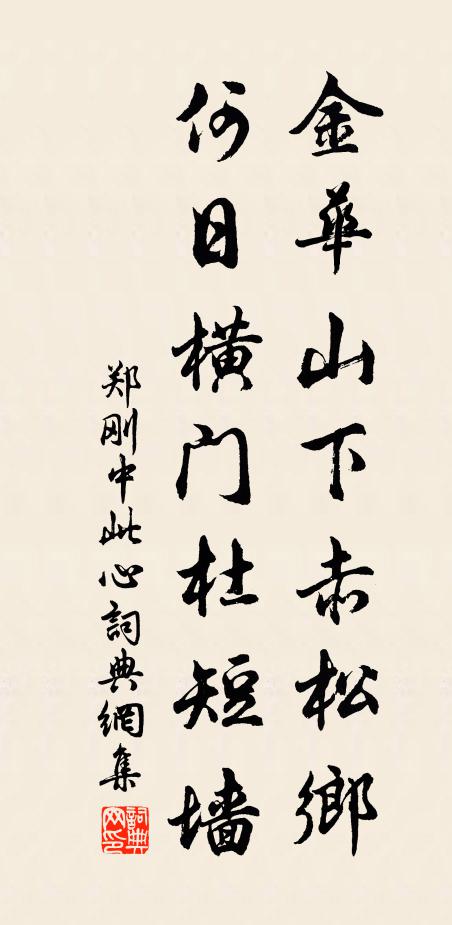 金華山下赤松鄉
何日横门杜短墙
郑刚中此心詞典網集
詞典网印